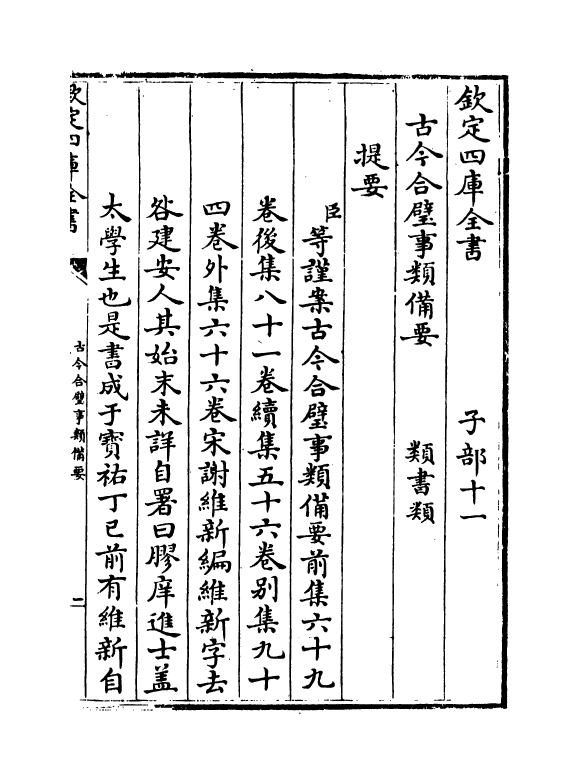 欽定四庫全書　　　子部十一
古今合璧事類備要　　　類書類
提要
臣等謹案古今合璧事類備要前集六十九
卷後集八十一卷續集五十六卷别集九十
四卷外集六十六卷宋謝維新編維新字去
咎建安人其始末未詳自署曰膠庠進士盖
太學生也是書成于寳祐丁已前有維新自
欽定四庫全書
古今合璧事類備要
二